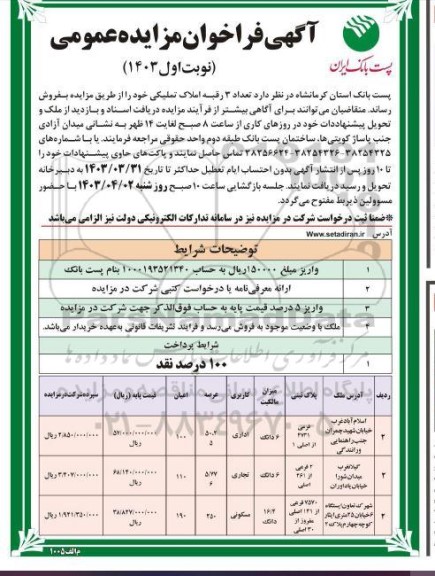 آگهی فراخوان مزایده عمومی
(نوبت اول ۱۴۰۳)
پست بانک ایران
پست بانک استان کرمانشاه در نظر دارد تعداد ۳ رقبه املاک تملیکی خود را از طریق مزایده بفروش
رساند. متقاضیان می‌توانند برای آگاهی بیشتر از فرآیند مزایده دریافت اسناد و بازدید از ملک و
تحویل پیشنهاددات خود در روزهای کاری از ساعت ۸ صبح لغایت ۱۴ ظهر به نشانی میدان آزادی
جنب پاساژ کویتی‌ها، ساختمان پست بانک طبقه دوم واحد حقوقی مراجعه فرمایند. یا با شماره‌های
۳۸۲۵۴۳۲۵-۳۸۲۵۴۳۴۶-۳۸۲۵۶۶۳۴ تماس حاصل نمایند و پاکت‌های حاوی پیشنهادات خود را
تا ۱۰ روز پس از انتشار آگهی بدون احتساب ایام تعطیل حداکثر تا تاریخ ۱۴۰۳/۰۳/۳۱ به دبیرخانه
تحویل و رسید دریافت نمایند. جلسه بازگشایی ساعت ۱۰ صبح روز شنبه ۱۴۰۳/۰۴/۰۲ با حضور
مسوولین ذیربط مفتوح می‌گردد.
※ضمنا ثبت درخواست شرکت در مزایده نیز در سامانه تدارکات الکترونیکی دولت نیز الزامی می‌باشد
آدرس Www.setadiran.ir
توضیحات شرایط
۱ واریز مبلغ ۱۵۰۰۰۰۰ ریال به حساب ۱۰۰۰۱۹۳۵۲۱۳۴۰ بنام پست بانک
۲ ارائه معرفی‌نامه یا درخواست کتبی شرکت در مزایده
۳ واریز ۵ درصد قیمت پایه به حساب فوق‌الذکر جهت شرکت در مزایده
۴ ملک با وضعیت موجود به فروش می‌رسد و فرایند تشریفات قانونی به‌عهده خریدار می‌باشد.
شرایط پرداخت
۱ ۱۰۰ درصد نقد
ردیف آدرس ملک پلاک ثبتی میزان مالکیت کاربری عرصه اعیان قیمت پایه (ریال) سپرده شرکت در مزایده
اسلام‌آباد غرب خیابان شهید چمران جنب راهنمایی و رانندگی ۶ دانگ اداری ۱۰۰ ۵۷/۰۰۰/۰۰۰/۰۰۰ ریال ۲/۸۵۰/۰۰۰/۰۰۰ ریال
گیلانغرب میدان شورا خیابان پاداوران ۲ فرعی از ۲۶۱ اصلی ۶ دانگ تجاری ۶۸/۱۴۰/۰۰۰/۰۰۰ ریال ۳/۴۰۷/۰۰۰/۰۰۰ ریال
۷۵۷۰ فرعی از ۱۴۱ اصلی مفروز از ۳۰ اصلی ۱۶/۴ دانگ مسکونی ۲۵۰ ۱۹۰ ۳۸/۸۲۷/۰۰۰/۰۰۰ ریال ۱/۹۴۱/۳۵۰/۰۰۰ ریال
م‌الف ۱۰۰۵
۰۲۱-۸۸۳۴۹۶۷۰